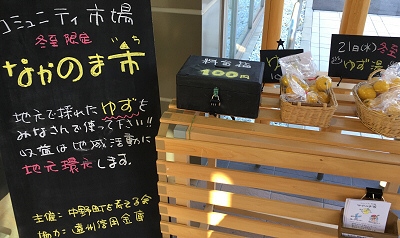 コミュニティ市場
冬至限定
なかのま市
地元で採れたゆずを
みなさんで使って下さい!!
収益は地域活動に
地元還元します。
主催:中野町を考える会
協力:遠州信用金庫
料金箱
100円
冬至
ゆず
21日(水)冬至
ゆず湯